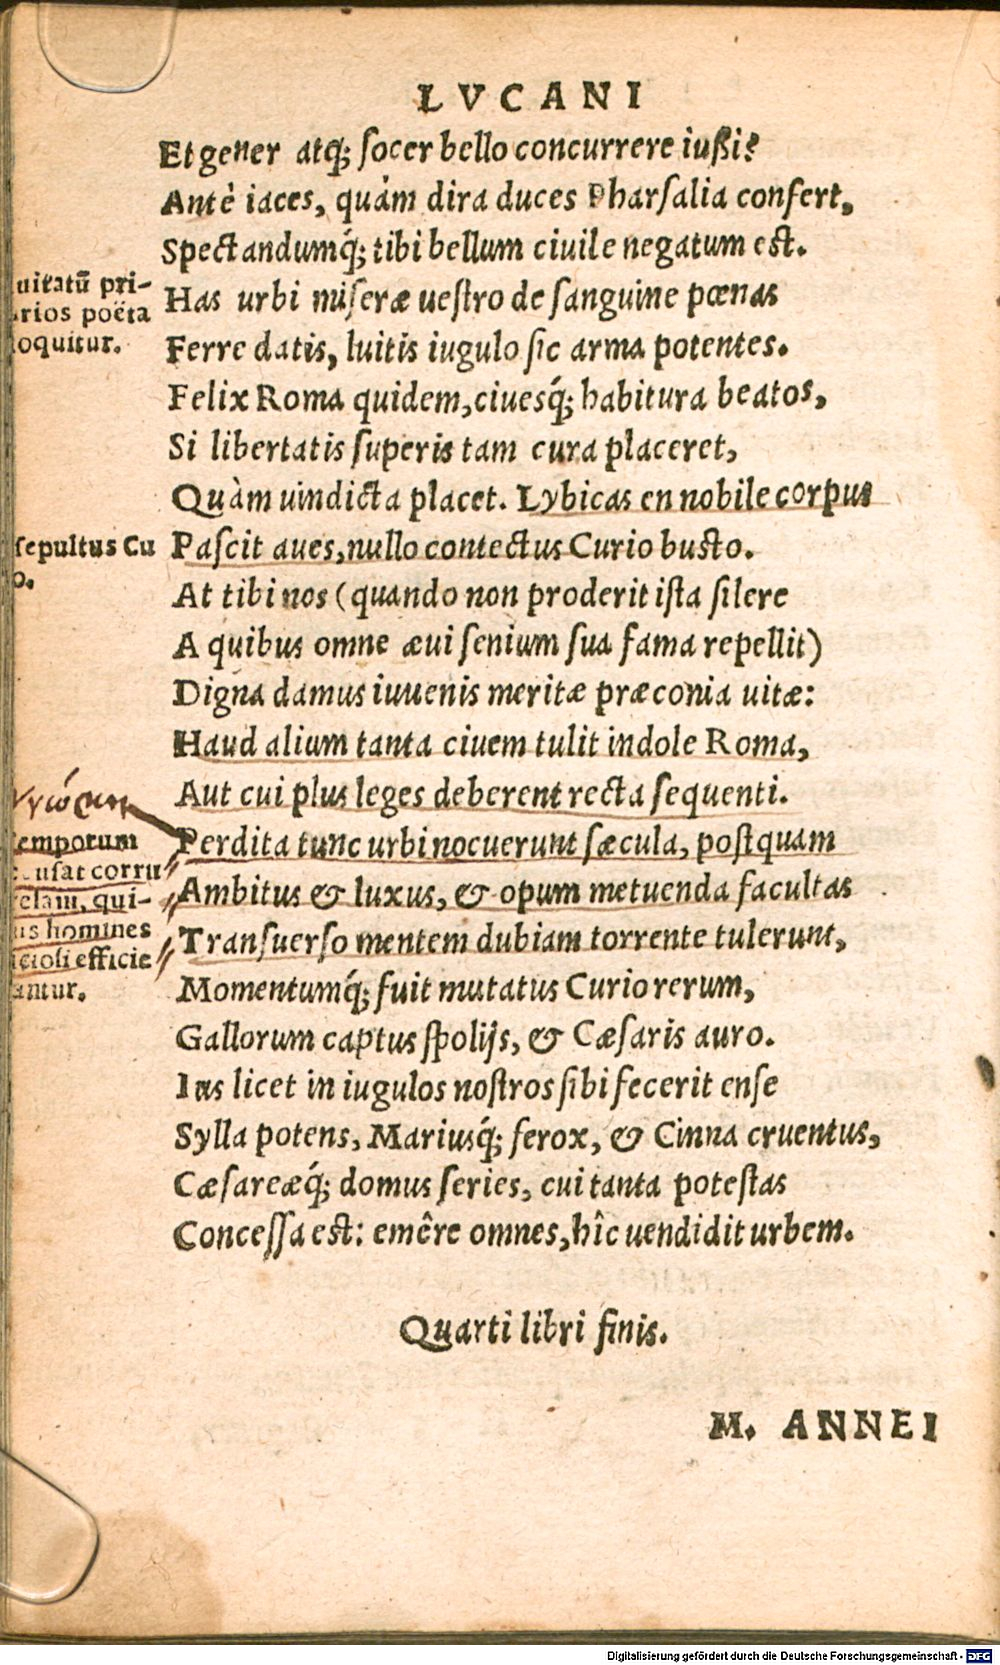 LVCANI
Et gener atq́; socer bello concurrere iußi?
Antè iaces, quàm dira duces Pharsalia confert,
Spectandumq́; tibi bellum ciuile negatum est.
uitatũ pri-
rios poëta
loquitur.
Has urbi miseræ uestro de sanguine pœnas
Ferre datis, luitis iugulo sic arma potentes.
Felix Roma quidem, ciuesq́; habitura beatos,
Si libertatis superis tam cura placeret,
Quàm uindicta placet. Lybicas en nobile corpus
sepultus Cu
o.
Pascit aues, nullo contectus Curio busto.
At tibi nos (quando non proderit ista silere
A quibus omne æui senium sua fama repellit)
Digna damus iuuenis meritæ præconia uitæ:
Haud alium tanta ciuem tulit indole Roma,
Aut cui plus leges deberent recta sequenti.
γνώμη
temporum
cusat corru
telam, qui-
us homines
iciosi efficie
antur.
Perdita tunc urbi nocuerunt sæcula, postquam
Ambitus & luxus, & opum metuenda facultas
Transuerso mentem dubiam torrente tulerunt,
Momentumq́; fuit mutatus Curio rerum,
Gallorum captus spolijs, & Cæsaris auro.
Ius licet in iugulos nostros sibi fecerit ense
Sylla potens, Mariusq́; ferox, & Cinna cruentus,
Cæsareæq́; domus series, cui tanta potestas
Concessa est: emêre omnes, hîc uendidit urbem.
Quarti libri finis.
M. ANNEI
Digitalisierung gefördert durch die Deutsche Forschungsgemeinschaft - DFG